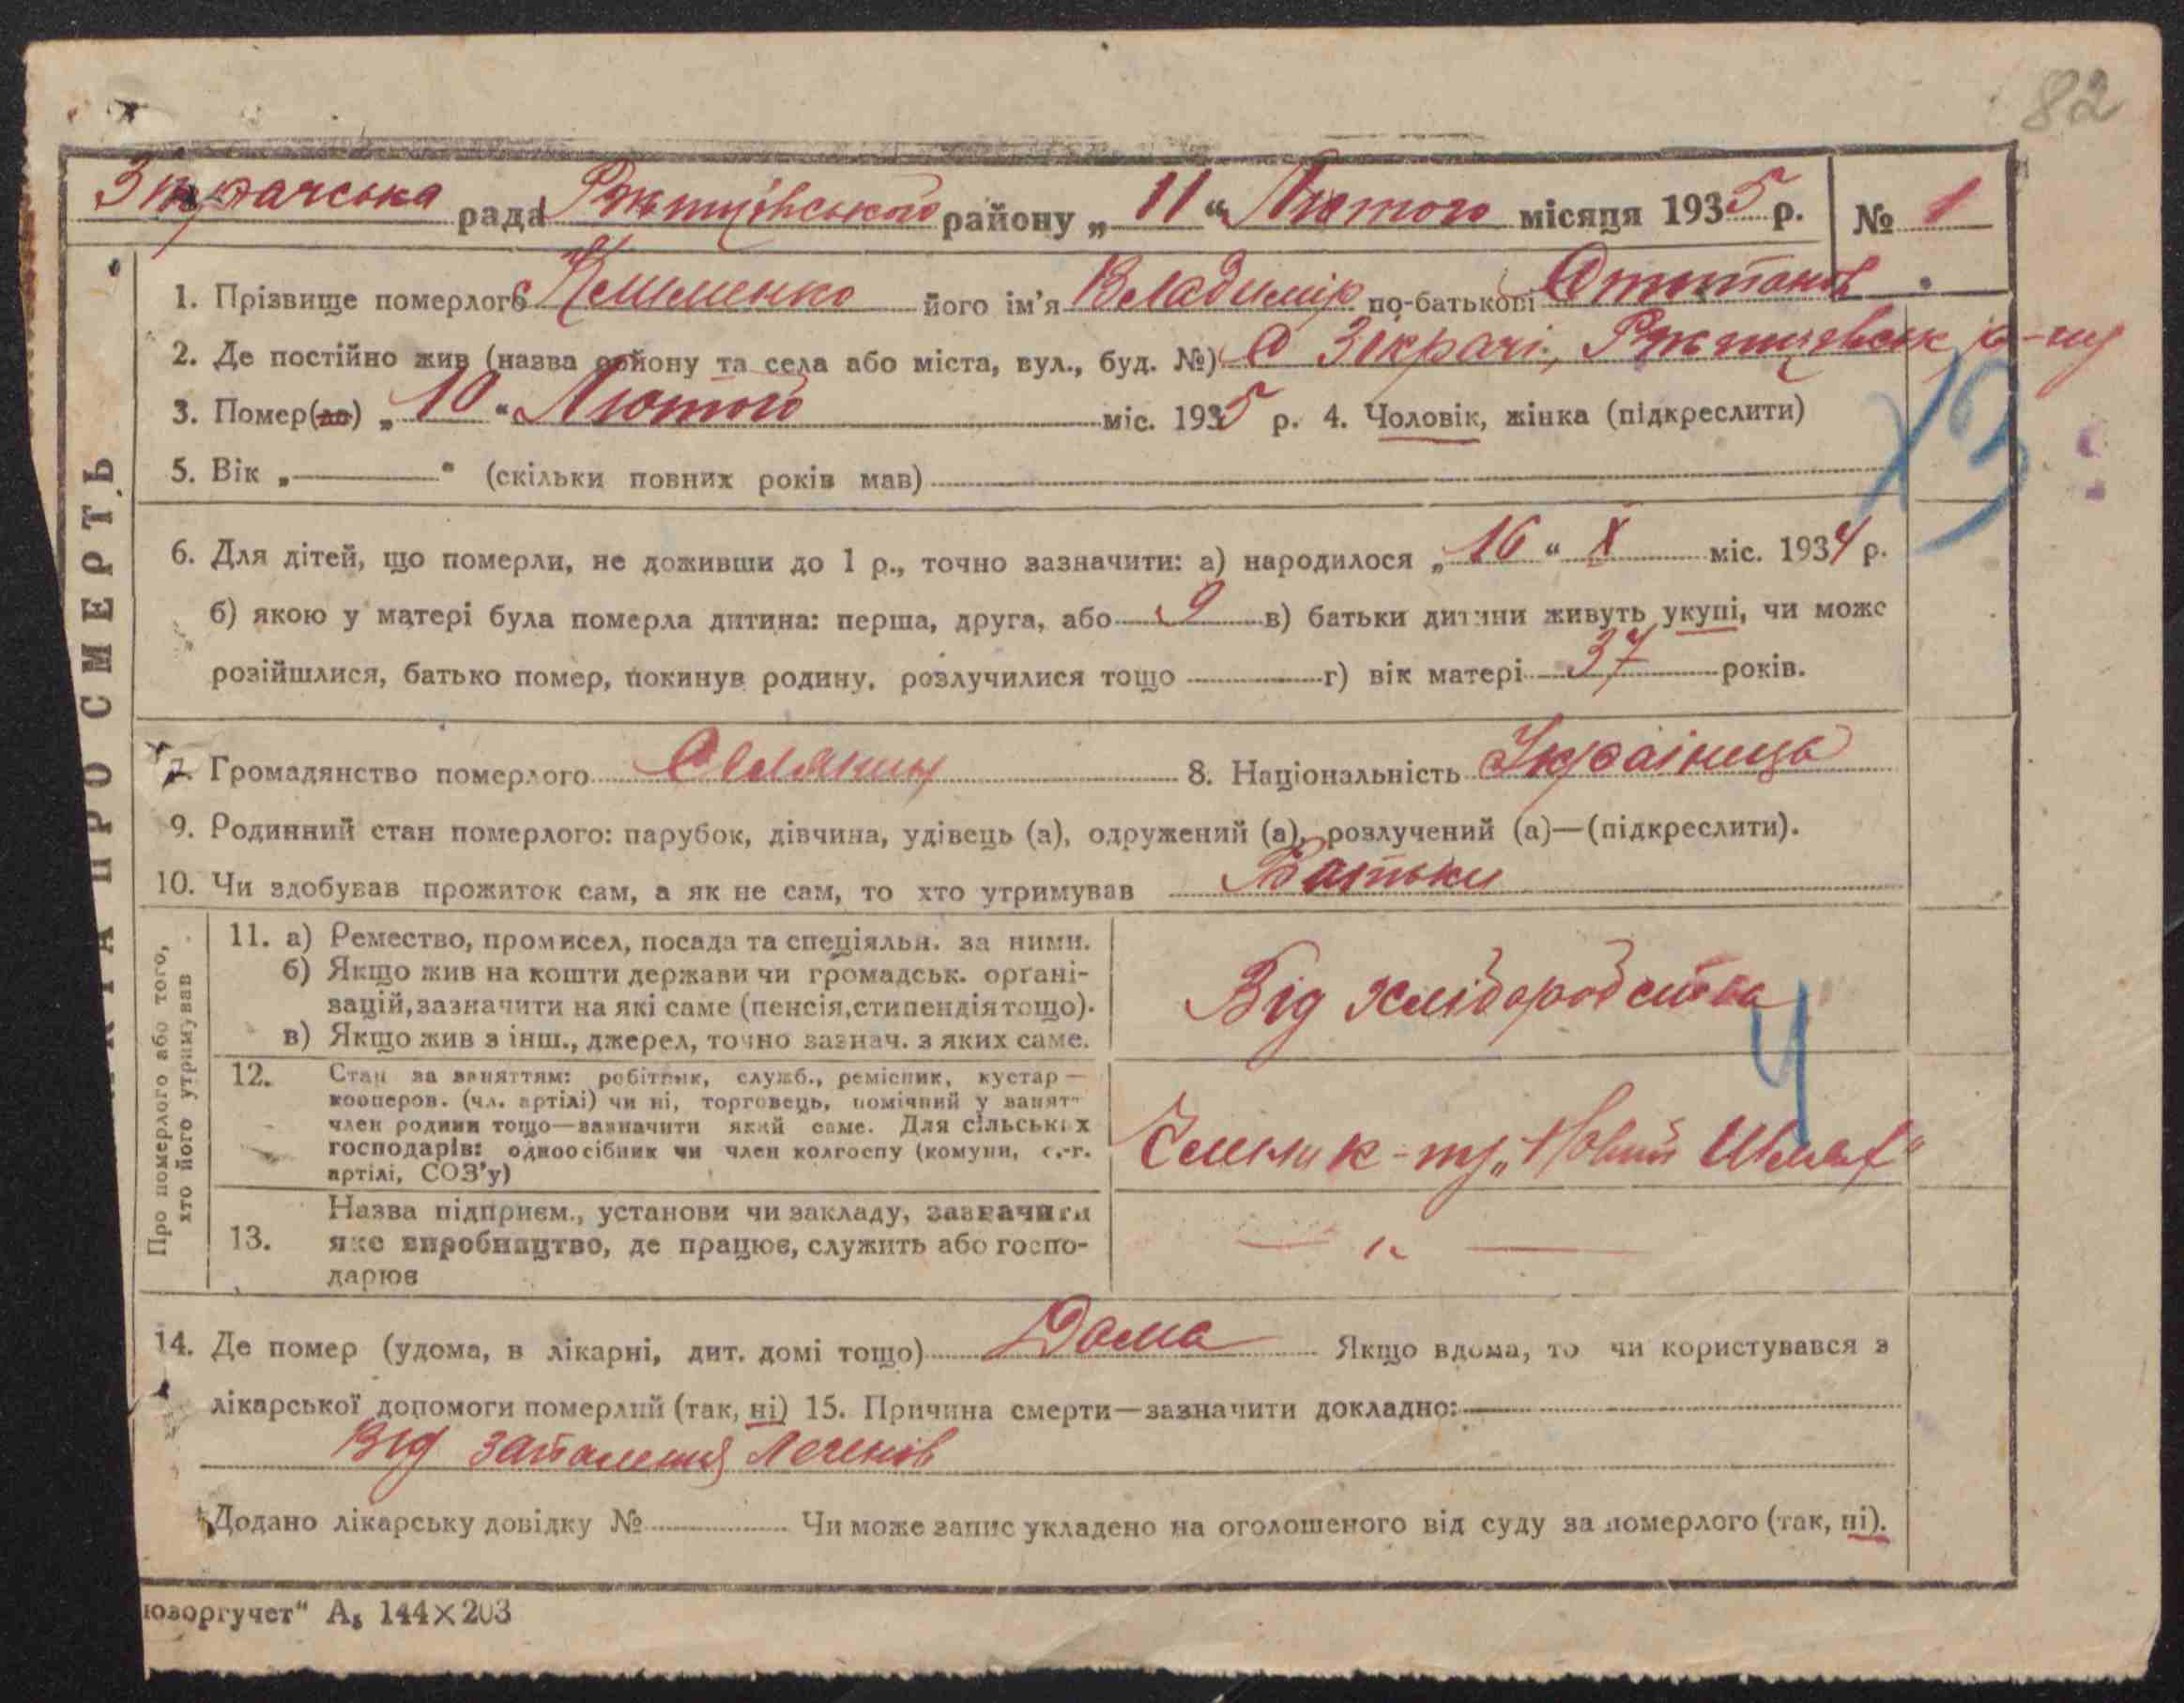 82
Зікрачська рада Ржищівського району „ 11 “ Лютого місяця 1935 р. № 1
1. Прізвище померлого Клименко його ім'я Владимір по-батькові
2. Де постійно жив (назва району та села або міста, вул., буд. №) С Зікрачі, Ржищевськ р-ну
3. Помер(ла) „ 10 “ Лютого міс. 1935 р. 4. Чоловік, жінка (підкреслити)
5. Вік „ — “ (скільки повних років мав)
6. Для дітей, що померли, не доживши до 1 р., точно зазначити: а) народилося „ 16 “ X міс. 1934 р.
б) якою у матері була померла дитина: перша, друга, або 9 в) батьки дитини живуть укупі, чи може
розійшлися, батько помер, покинув родину, розлучилися тощо г) вік матері 37 років.
7. Громадянство померлого Селянин 8. Національність Українець
9. Родинний стан померлого: парубок, дівчина, удівець (а), одружений (а), розлучений (а)—(підкреслити).
10. Чи здобував прожиток сам, а як не сам, то хто утримував Батьки
КАРТА ПРО СМЕРТЬ
Про померлого або того,
хто його утримував
11. а) Ремество, промисел, посада та спеціяльн. за ними.
б) Якщо жив на кошти держави чи громадськ. орґані-
зацій, зазначити на які саме (пенсія, стипендія тощо).
в) Якщо жив з інш., джерел, точно зазнач. з яких саме.
Від хліборобства
12. Стан за заняттям: робітник, служб., ремісник, кустар —
кооперов. (чл. артілі) чи ні, торговець, помічний у занятт
член родини тощо—зазначити який саме. Для сільських
господарів: одноосібник чи член колгоспу (комуни, с.-г.
артілі, СОЗ'у)
Член к-пу „Новий Шлях“
4
13. Назва підприєм., установи чи закладу, зазначити
яке виробництво, де працює, служить або госпо-
дарює
— „ —
14. Де помер (удома, в лікарні, дит. домі тощо) Дома Якщо вдома, то чи користувався з
лікарської допомоги померлий (так, ні) 15. Причина смерти—зазначити докладно:
Від запалення легенів
Додано лікарську довідку № Чи може запис укладено на оголошеного від суду за померлого (так, ні).
юзоргучет“ А₅ 144×203